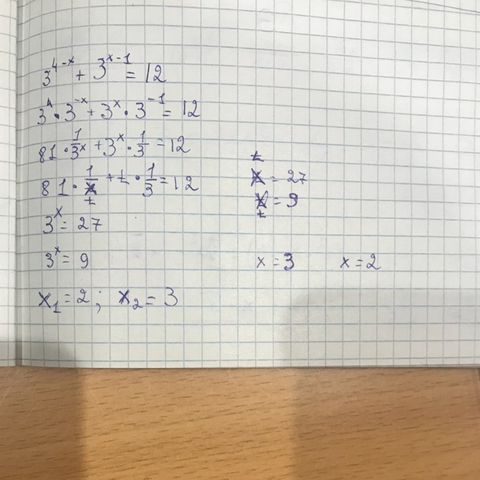 3^{4-x} + 3^{x-1} = 12
3^4 · 3^{-x} + 3^x · 3^{-1} = 12
81 · 1/3^x + 3^x · 1/3 = 12
81 · 1/t + t · 1/3 = 12
3^x = 27
3^x = 9
x_1 = 2 ; x_2 = 3
t = 27
t = 9
x = 3 x = 2